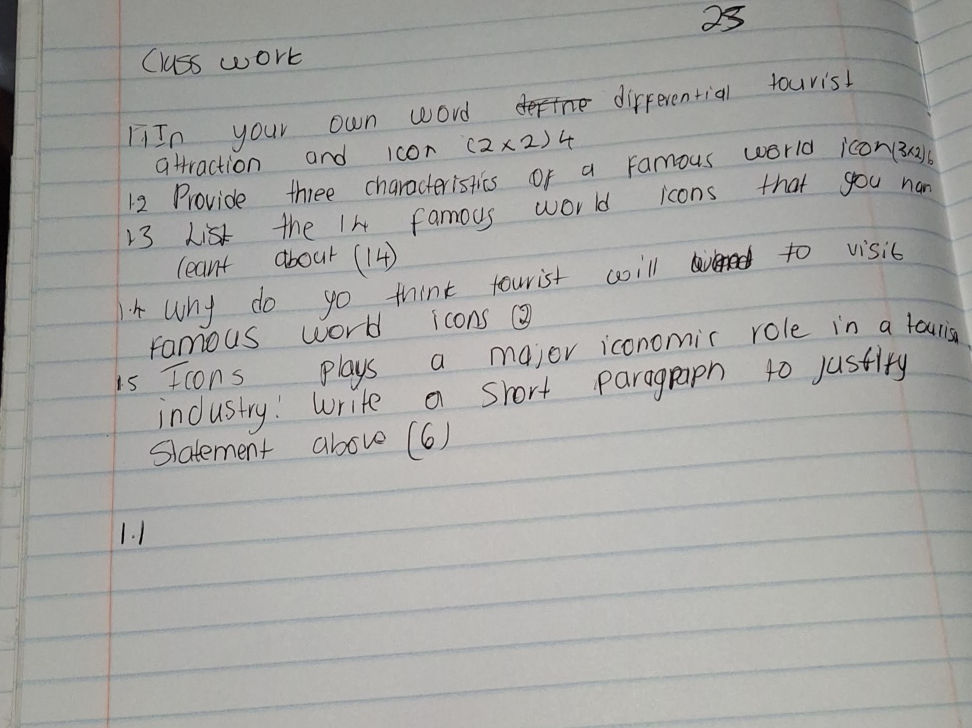 23
Class work
1.1 In your own word define differential tourist
attraction and icon (2×2)4
1.2 Provide three characteristics of a famous world icon(3×2)6
1.3 List the 14 famous world icons that you
leant about (14)
1.4 Why do yo think tourist will to visit
famous world icons (2)
1.5 Icons plays a major iconomic role in a
industry! Write a short paragraph to justify
Statement above (6)
1.1